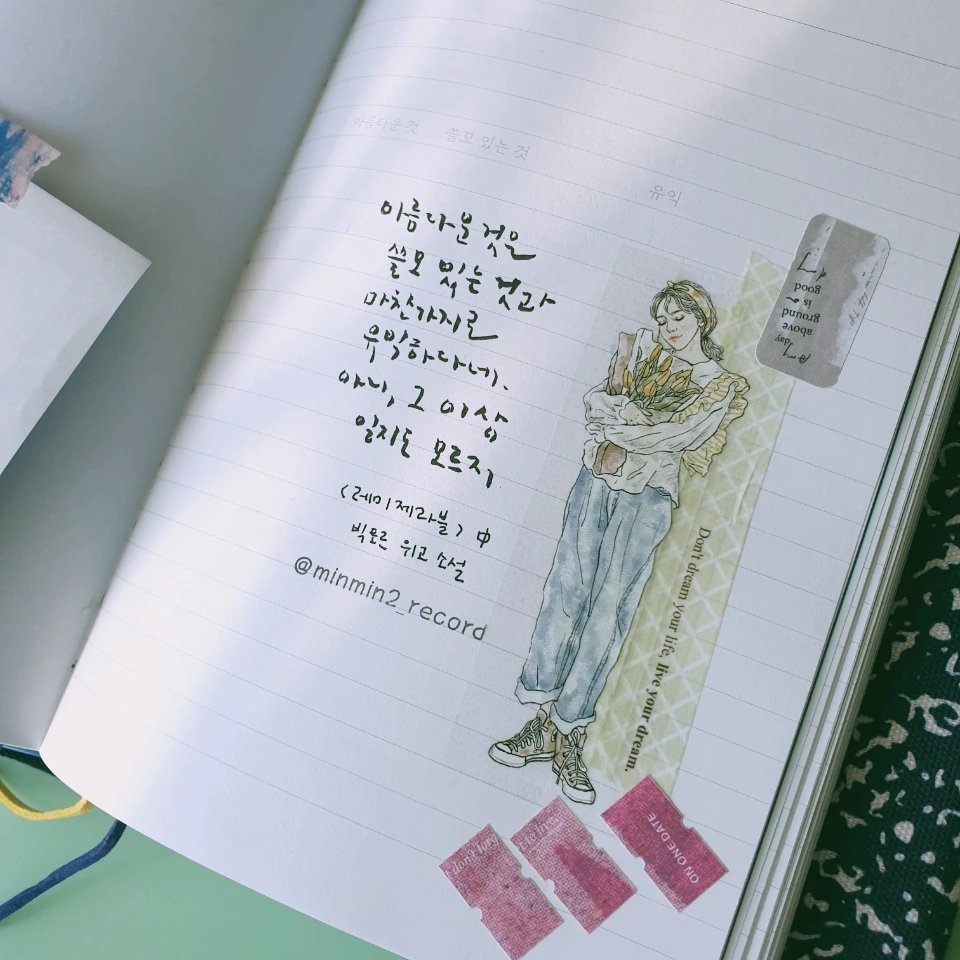 아름다운 것 쓸모 있는 것
유익
아름다운 것은
쓸모 있는 것과
마찬가지로
유익하다네.
아니, 그 이상
일지도 모르지,
<레미제라블> 中
빅토르 위고 소설
@minmin2_record
Any day
above
ground
is
good
Don't dream your life, live your dream.
don't
to live
ON ONE DATE